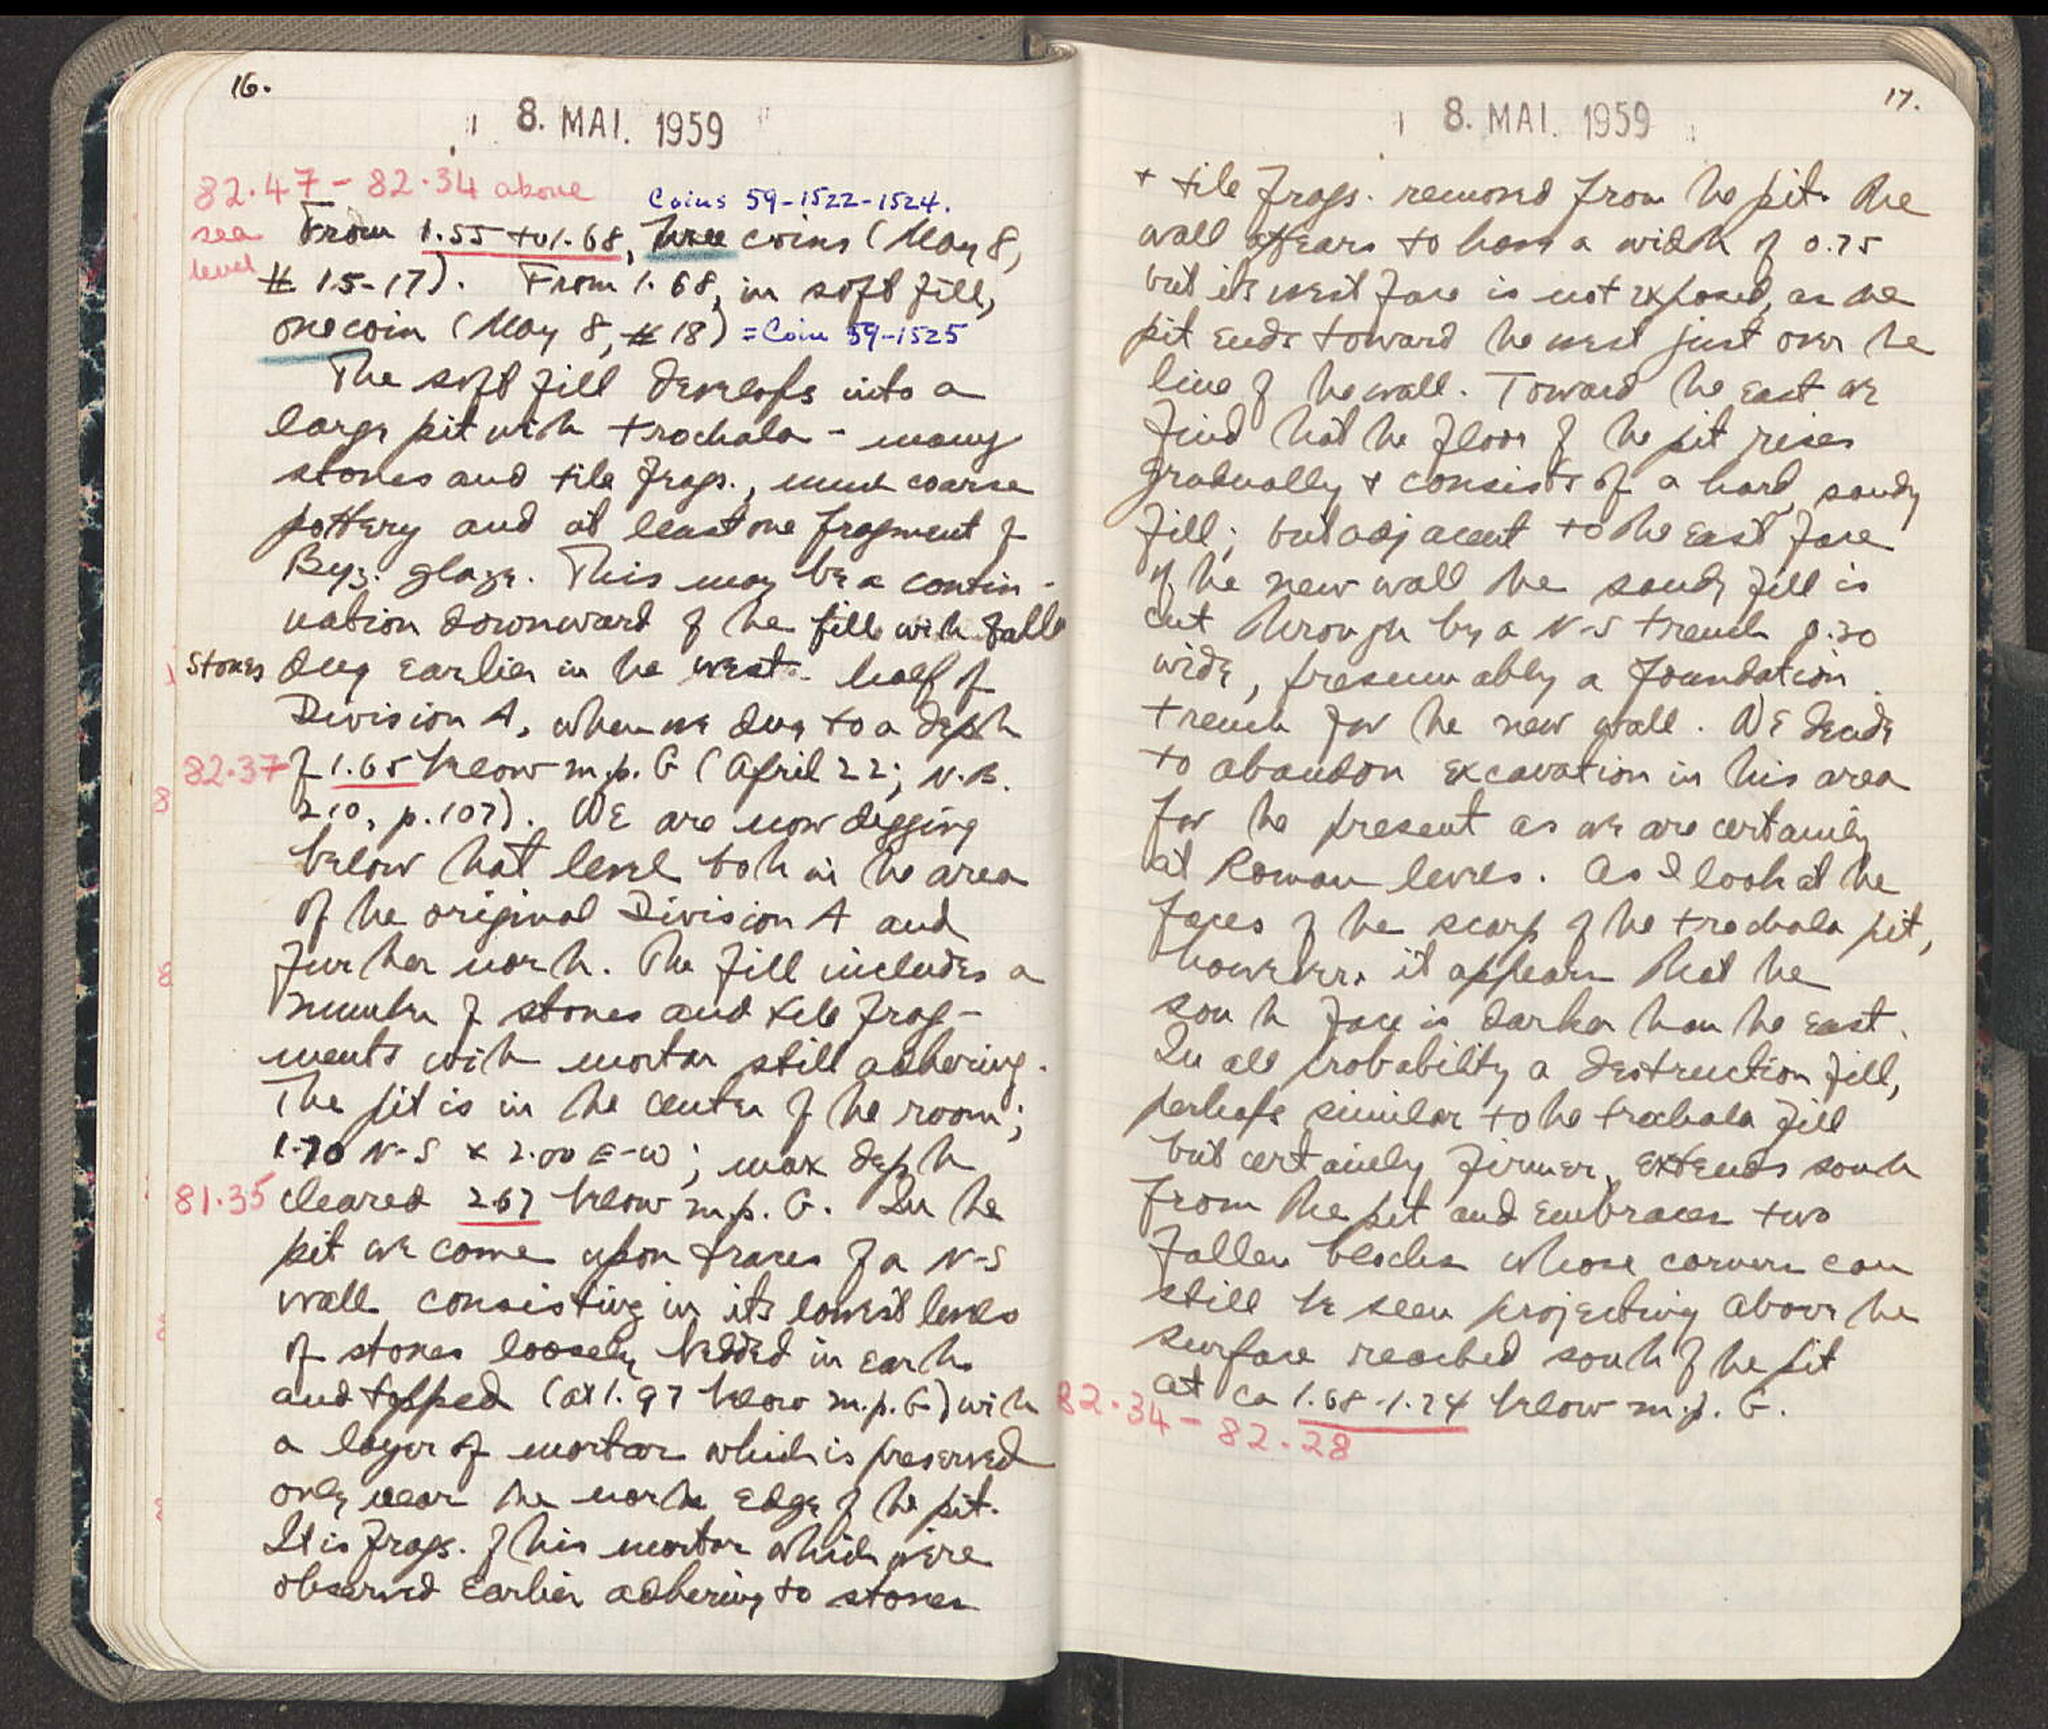 16.
8. MAI. 1959
82.47 - 82.34 above
sea
level
Coins 59-1522-1524.
From 1.55 to 1.68, three coins (May 8,
# 15-17). From 1.68, in soft fill,
one coin (May 8, # 18) = Coin 59-1525
The soft fill develops into a
large pit with trochala - many
stones and tile frags., much coarse
pottery and at least one fragment of
Byz. glaze. This may be a contin-
uation downward of the fill with fallen
stones dug earlier in the west half of
Division A, when we dug to a depth
82.37 of 1.65 below m.p. G (April 22; N.B.
210, p. 107). We are now digging
below that level both in the area
of the original Division A and
further north. The fill includes a
number of stones and tile frag-
ments with mortar still adhering.
The pit is in the center of the room;
1.70 N-S x 2.00 E-W; max depth
81.35 cleared 2.67 below m.p. G. In the
pit we come upon traces of a N-S
wall consisting in its lowest levels
of stones loosely bedded in earth
and topped (at 1.97 below m.p. G) with
a layer of mortar which is preserved
only near the north edge of the pit.
It is frags. of this mortar which were
observed earlier adhering to stones
17.
8. MAI. 1959
+ tile frags. removed from the pit. The
wall appears to have a width of 0.75
but its west face is not exposed, as the
pit ends toward the west just over the
line of the wall. Toward the east we
find that the floor of the pit rises
gradually + consists of a hard, sandy
fill; but adjacent to the east face
of the new wall the sandy fill is
cut through by a N-S trench 0.20
wide, presumably a foundation
trench for the new wall. We decide
to abandon excavation in this area
for the present as we are certainly
at Roman levels. As I look at the
faces of the scarp of the trochala pit,
however, it appears that the
south face is darker than the east.
In all probability a destruction fill,
perhaps similar to the trochala fill
but certainly firmer, extends south
from the pit and embraces two
fallen blocks whose corners can
still be seen projecting above the
surface reached south of the pit
at ca 1.68-1.74 below m.p. G.
82.34 - 82.28